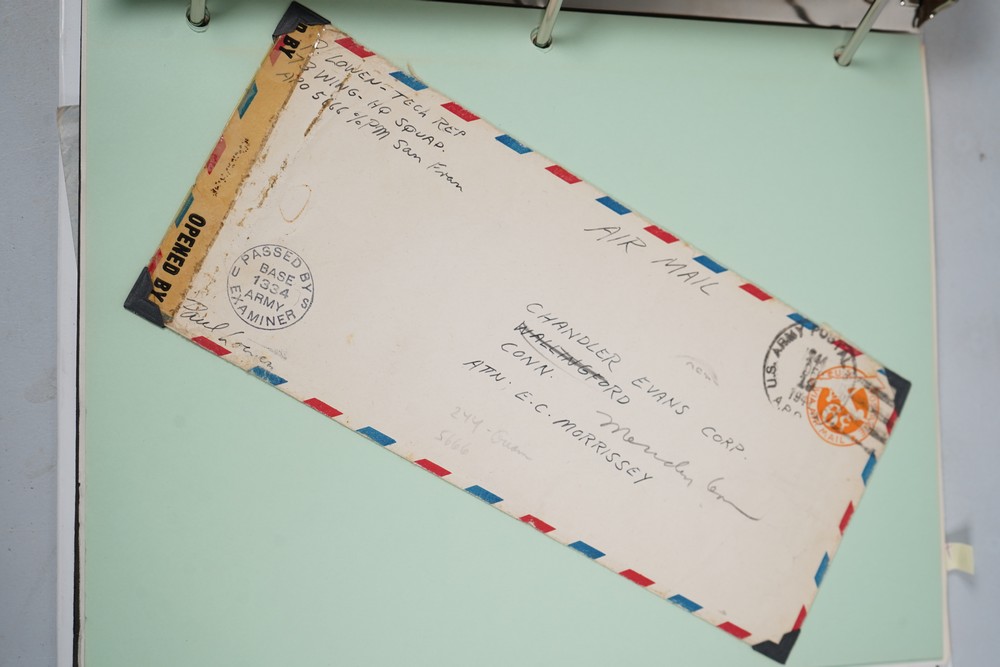 D BY
P. LOWEN - TECH REP
WING - HQ SQUAD.
APO 5666 % PM San Fran
OPENED BY
PASSED BY
U S
BASE
1334
ARMY
EXAMINER
Paul Lowen
AIR MAIL
CHANDLER EVANS CORP.
WALLINGFORD
CONN.
ATN. E.C. MORRISSEY
Meriden Conn
244 - Guam
5666
U.S. ARMY POSTAL
A.P.O.
AIR MAIL
6¢